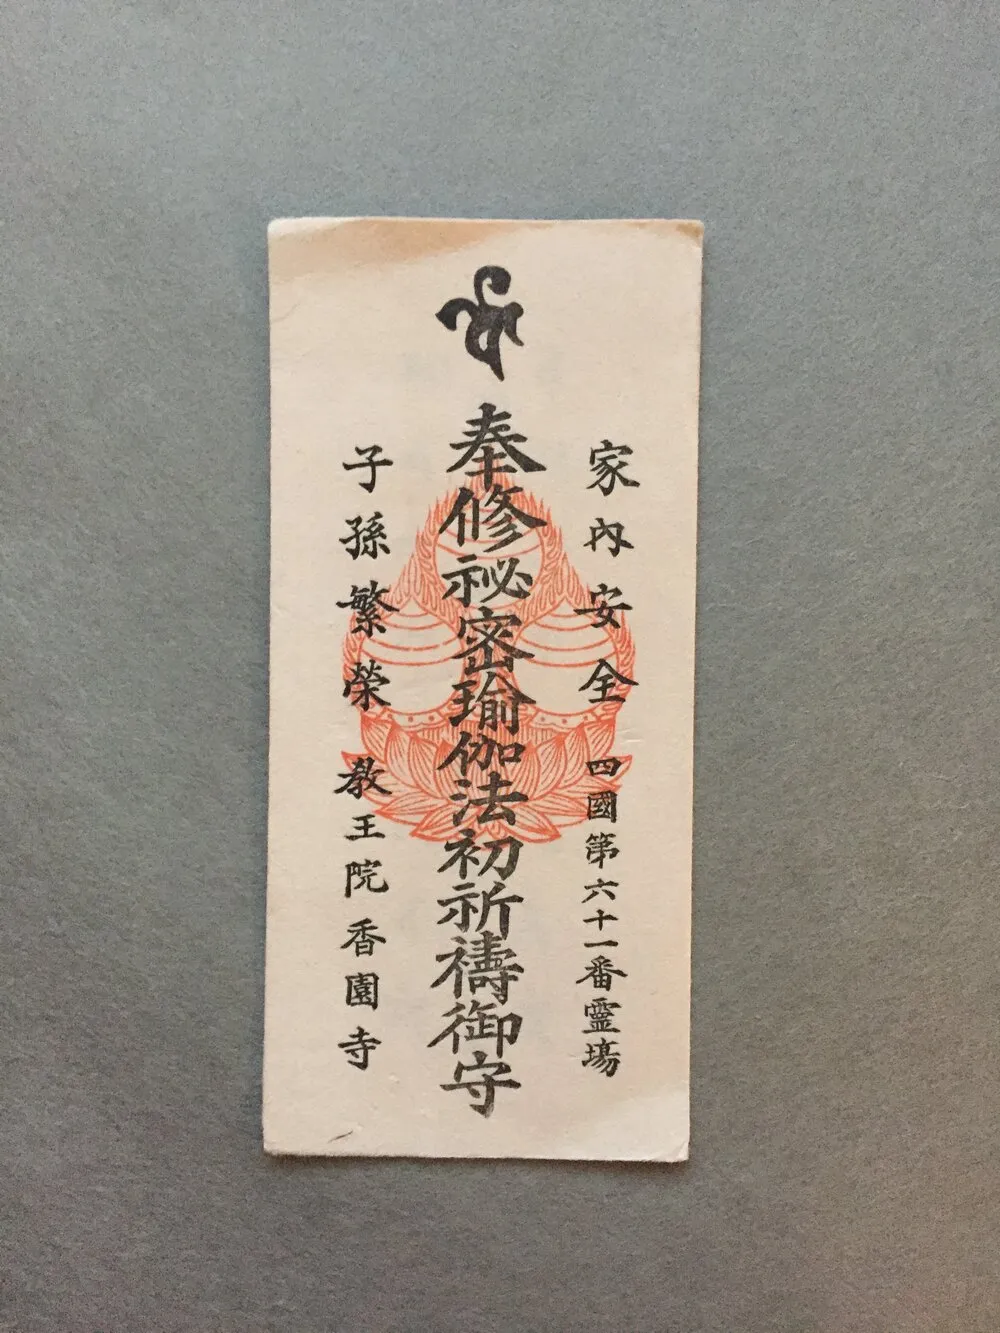 家内安全 四國第六十一番霊場
奉修祕密瑜伽法初祈禱御守
子孫繁榮 教王院香園寺